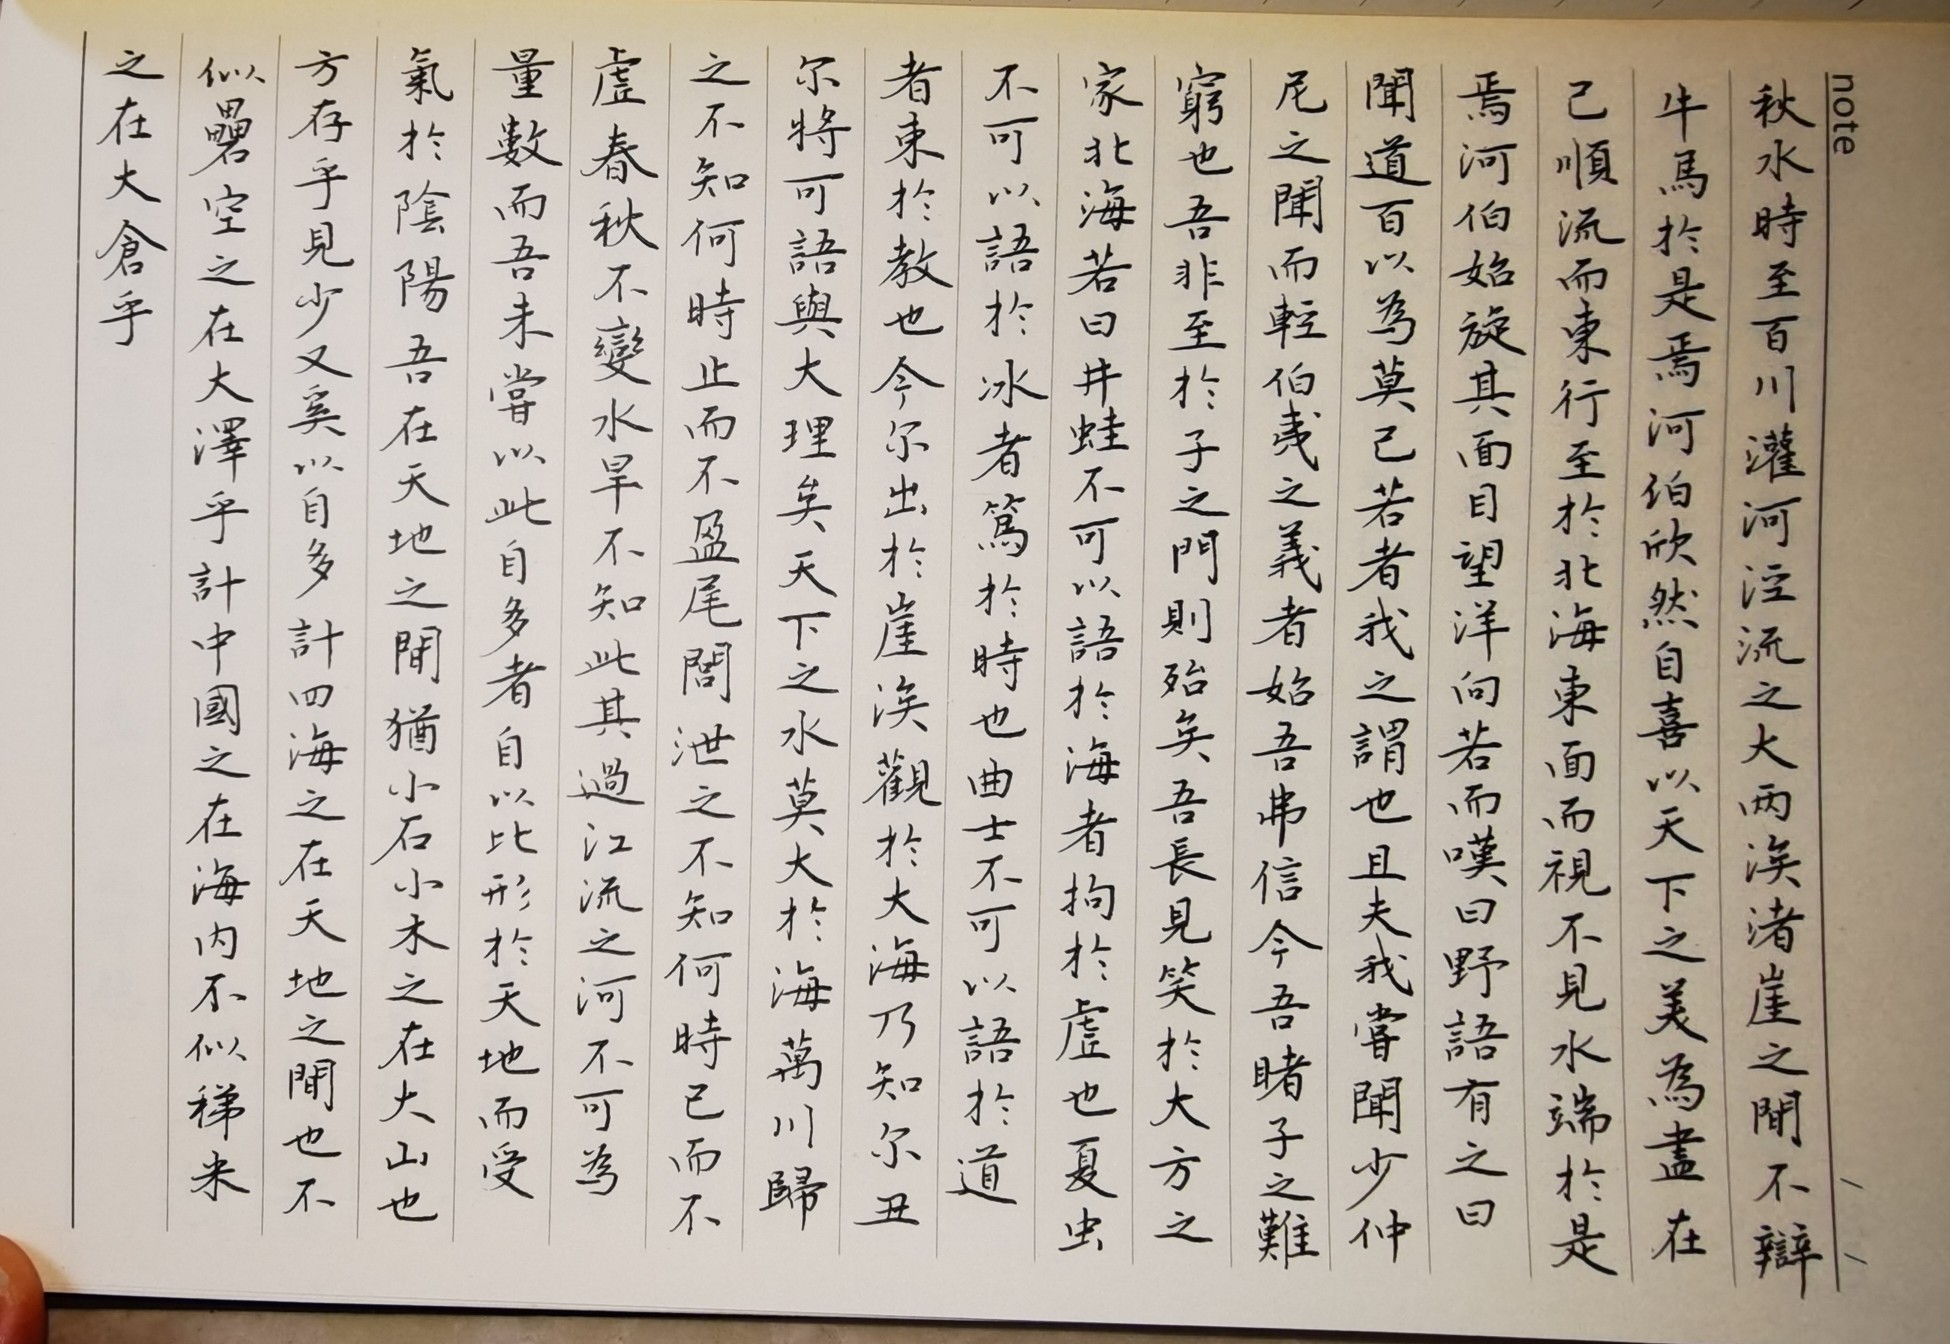 note
秋水時至百川灌河泾流之大两涘渚崖之間不辯
牛馬於是焉河伯欣然自喜以天下之美為盡在
己順流而東行至於北海東面而視不見水端於是
焉河伯始旋其面目望洋向若而嘆曰野語有之曰
聞道百以為莫己若者我之謂也且夫我嘗聞少仲
尼之聞而輕伯夷之義者始吾弗信今吾睹子之難
窮也吾非至於子之門則殆矣吾長見笑於大方之
家北海若曰井蛙不可以語於海者拘於虛也夏虫
不可以語於冰者篤於時也曲士不可以語於道
者束於教也今尔出於崖涘觀於大海乃知尔丑
尔將可語與大理矣天下之水莫大於海萬川歸
之不知何時止而不盈尾閭泄之不知何時已而不
虛春秋不變水旱不知此其過江流之河不可為
量數而吾未嘗以此自多者自以比形於天地而受
氣於陰陽吾在天地之間猶小石小木之在大山也
方存乎見少又奚以自多計四海之在天地之間也不
似礨空之在大澤乎計中國之在海内不似稊米
之在大倉乎